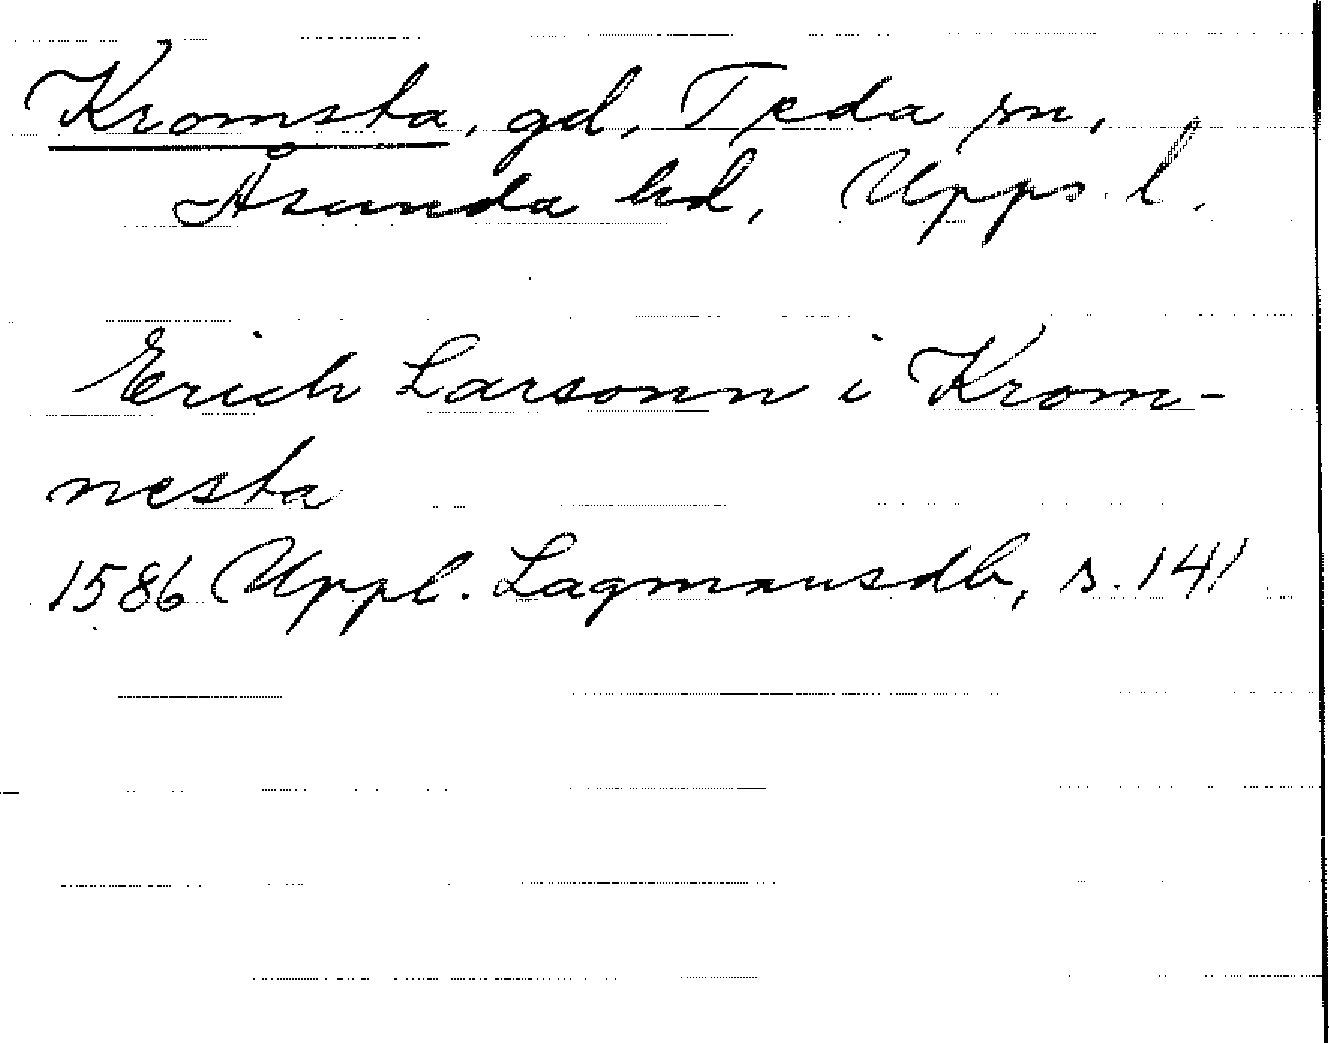 Kromsta, gd, Tjeda sn,
Åsunda hd, Upps. l.
Erich Larsonn i Krom-
nesta
1586 Uppl. Lagmansdb, s. 141